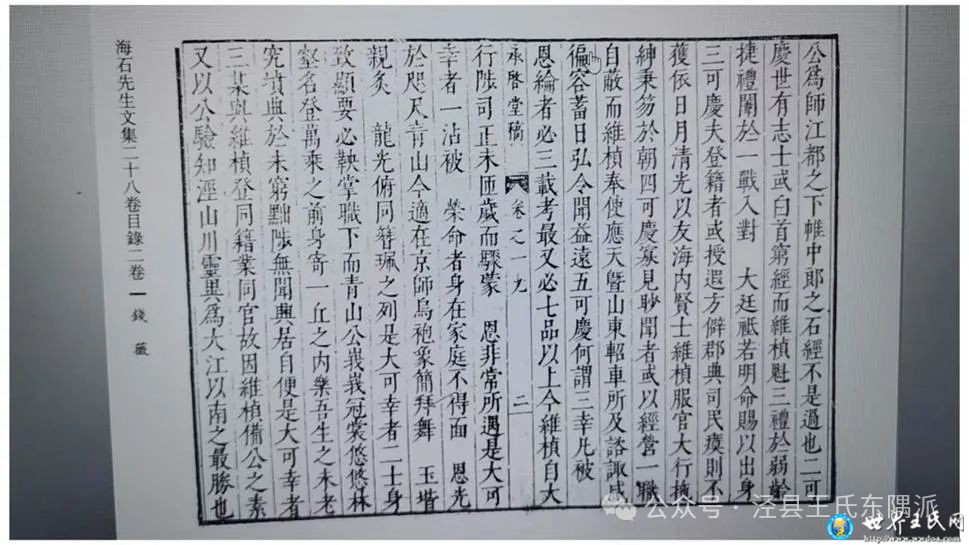 公爲師江都之下帷中郎之石經不是過也二可
慶世有志士或白首窮經而維楨魁三禮於弱齡
捷禮闈於一戰入對 大廷祗若明命賜以出身
三可慶夫登籍者或授遐方僻郡典司民瘼則不
獲依日月清光以友海内賢士維楨服官大行搢
紳秉笏於朝四可慶寡見眇聞者或以經營一職
自蔽而維楨奉使應天曁山東軺車所及諮諏咸
徧容蓄日弘令聞益遠五可慶何謂三幸凡被
恩綸者必三載考最又必七品以上今維楨自大
承啓堂稿 卷之一九 二
行陟司正未匝歲而驟蒙 恩非常所遇是大可
幸者一沾被 榮命者身在家庭不得面 恩光
於咫尺青山今適在京師烏袍象簡拜舞 玉堦
親炙 龍光俯同簪珮之列是大可幸者二士身
致顯要必鞅掌職下而青山公峩峩冠裳悠悠林
壑名登萬乘之前身寄一丘之内樂吾生之未老
究墳典於未窮黜陟無聞興居自便是大可幸者
三某與維楨登同籍業同官故因維楨備公之素
又以公驗知涇山川靈異爲大江以南之最勝也
海石先生文集二十八卷目錄二卷 一 錢 薇
公众号·泾县王氏东隅派
世界王氏网